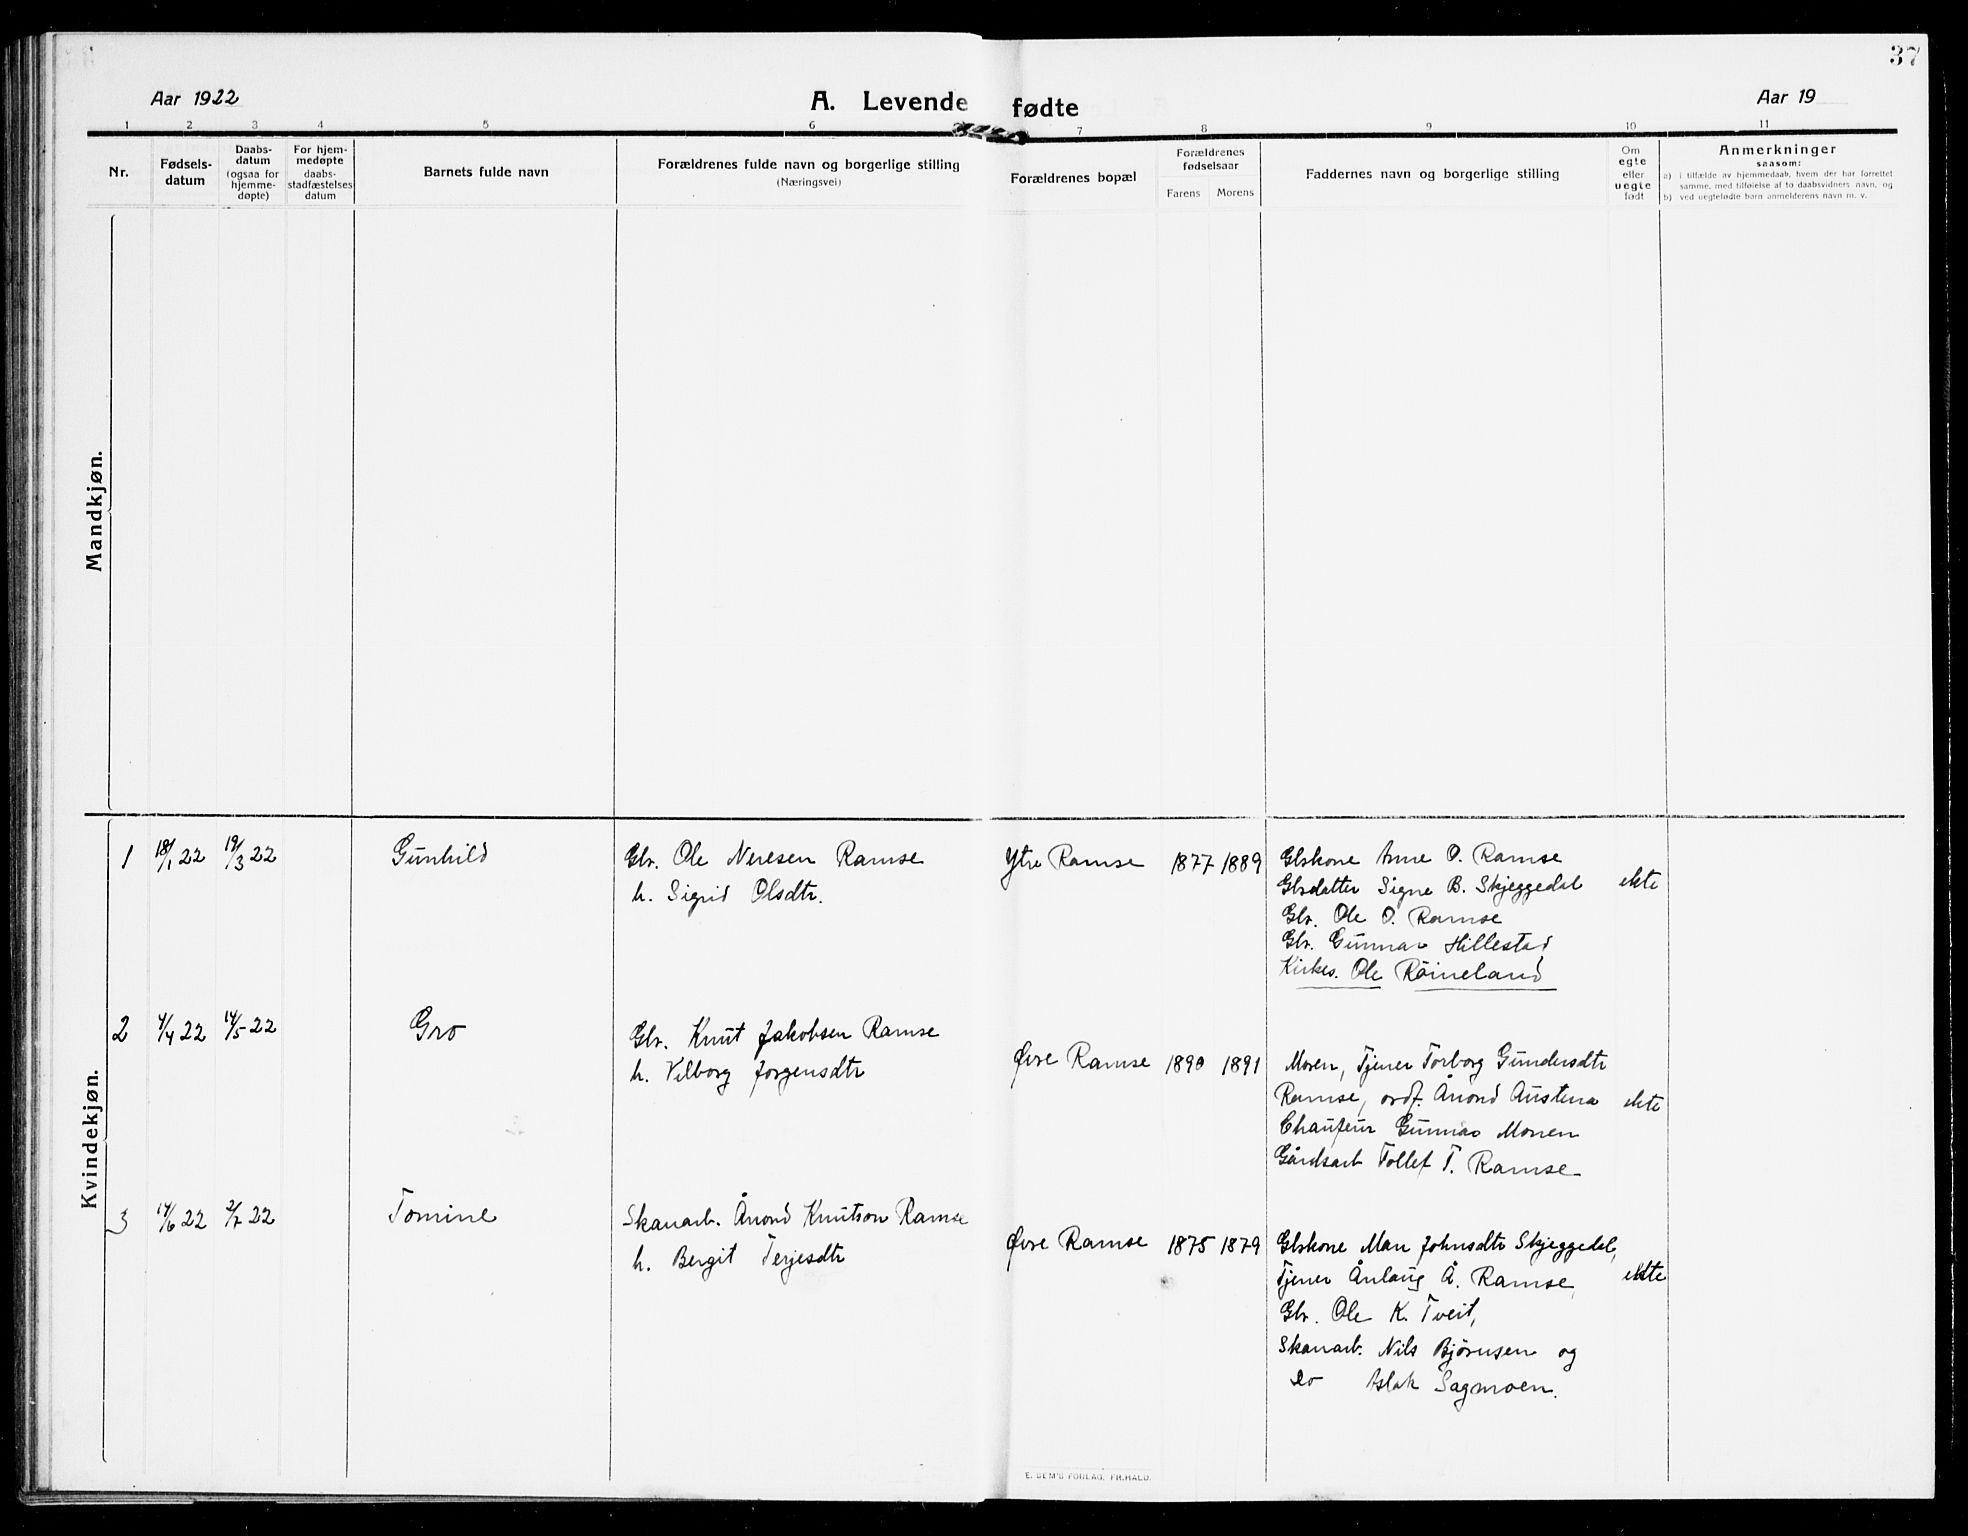 37
Aar 1922
A. Levende fødte
Aar 19
1 2 3 4 5 6 7 8 9 10 11
Nr.
Fødsels-
datum
Daabs-
datum
(ogsaa for
hjemme-
døpte)
For hjem-
medøpte
daabs-
stadfæstelses
datum
Barnets fulde navn
Forældrenes fulde navn og borgerlige stilling
(Næringsvei)
Forældrenes bopæl
Forældrenes
fødselsaar
Farens Morens
Faddernes navn og borgerlige stilling
Om
egte
eller
uegte
født
Anmerkninger
saasom:
a) i tilfælde av hjemmedaab, hvem der har forrettet
samme, med tilføielse af to daabsvidners navn, og
b) ved uegtefødte barn anmelderens navn m. v.
Mandkjøn.
Kvindekjøn.
1 18/1 22 19/3 22 Gunhild
Gbr. Ole Neresen Ramse
h. Sigrid Olsdtr.
Ytre Ramse 1877 1889
Gbskone Anne O. Ramse
Gbrdatter Signe B. Skjeggedal ekte
Gbr. Ole O. Ramse
Gbr. Gunnar Hillestad
Kirkes. Ole Røineland
2 4/4 22 14/5 22 Gro
Gbr. Knut Jakobsen Ramse
h. Vilborg Jorgensdtr
Øvre Ramse 1890 1891
Moren, Tjener Torborg Gundersdtr
Ramse, ordf. Ånond Austenå ekte
Chaufeur Gunnar Monen
Gårdsarb Tollef T. Ramse
3 14/6 22 2/7 22 Tomine
Skauarb. Ånond Knutson Ramse
h. Bergit Terjesdtr
Øvre Ramse 1875 1879
Gbskone Mari Johnsdtr Skjeggedal,
Tjener Ånlaug Å. Ramse, ekte
Gbr. Ole K. Tveit,
Skauarb. Nils Bjørnsen og
do Aslak Sagmoen.
E. SEM'S FORLAG, FR.HALD.